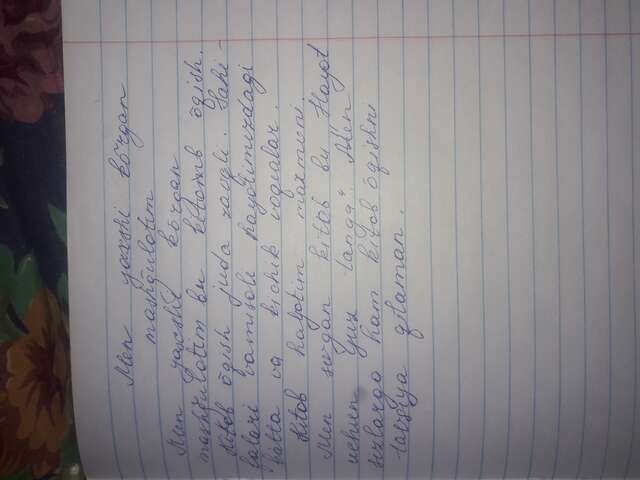 Men yaxshi ko'rgan
mashg'ulotim
Men yaxshi ko'rgan
mashg'ulotim bu kitobxub õqish.
Kitob õqish juda zavqli. Sahi-
falari vamisoli hayotimizdagi
katta va kichik voqialar.
Kitob hayotim mazmuni.
Men sevgan kitob bu Hayot
uchun yuz tanga". Men
sizlarga ham kitob õqishni
tafsiya qilaman.